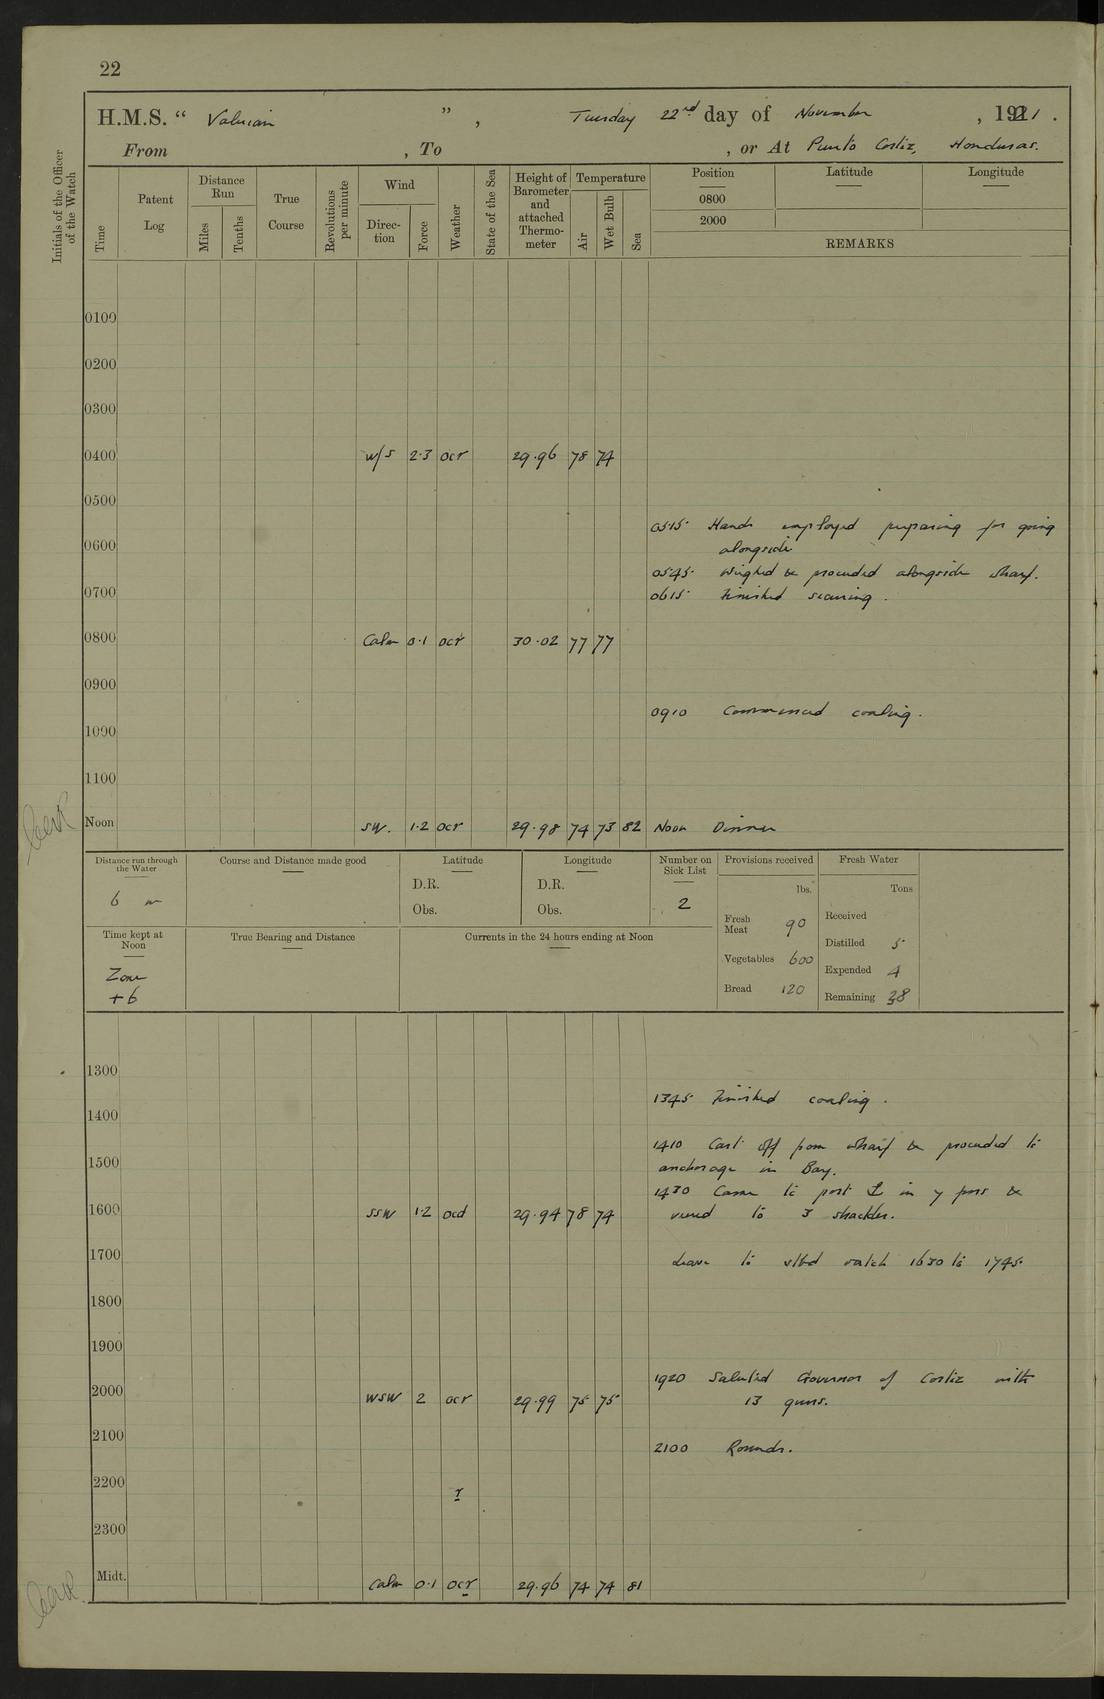 22
H.M.S. " Valerian ", Tuesday 22nd day of November, 1921.
From , To , or At Punto Cortiz, Honduras.
Initials of the Officer of the Watch
Time
Patent Log
Distance Run
Miles
Tenths
True Course
Revolutions per minute
Wind
Direc-tion
Force
Weather
State of the Sea
Height of Barometer and attached Thermo-meter
Temperature
Air
Wet Bulb
Sea
Position
Latitude
Longitude
0800
2000
REMARKS
0100
0200
0300
0400 W/S 2·3 ocr 29·96 78 74
0500
0515 Hands employed preparing for going
alongside
0600
0545 Weighed & proceeded alongside wharf.
0700
0615 Finished securing.
0800 Calm 0·1 ocr 30·02 77 77
0900
0910 Commenced coaling.
1000
1100
Noon SW. 1·2 ocr 29·98 74 73 82 Noon Dinner
Distance run through the Water
6 m
Course and Distance made good
Latitude
D.R.
Obs.
Longitude
D.R.
Obs.
Number on Sick List
2
Provisions received
lbs.
Fresh Meat 90
Vegetables 600
Bread 120
Fresh Water
Tons
Received
Distilled 5
Expended 4
Remaining 38
Time kept at Noon
Zone
+6
True Bearing and Distance
Currents in the 24 hours ending at Noon
1300
1345 Finished coaling.
1400
1410 Cast off from wharf & proceeded to
1500
anchorage in Bay.
1430 Came to port ⚓ in 7 fms &
1600 SSW 1·2 ocd 29·94 78 74
veered to 3 shackles.
1700
Leave to stbd watch 1630 to 1745
1800
1900
1920 Saluted Governor of Cortiz with
2000 WSW 2 ocr 29·99 75 75
13 guns.
2100
2100 Rounds.
2200
r
2300
Midt. Calm 0·1 ocr 29·96 74 74 81